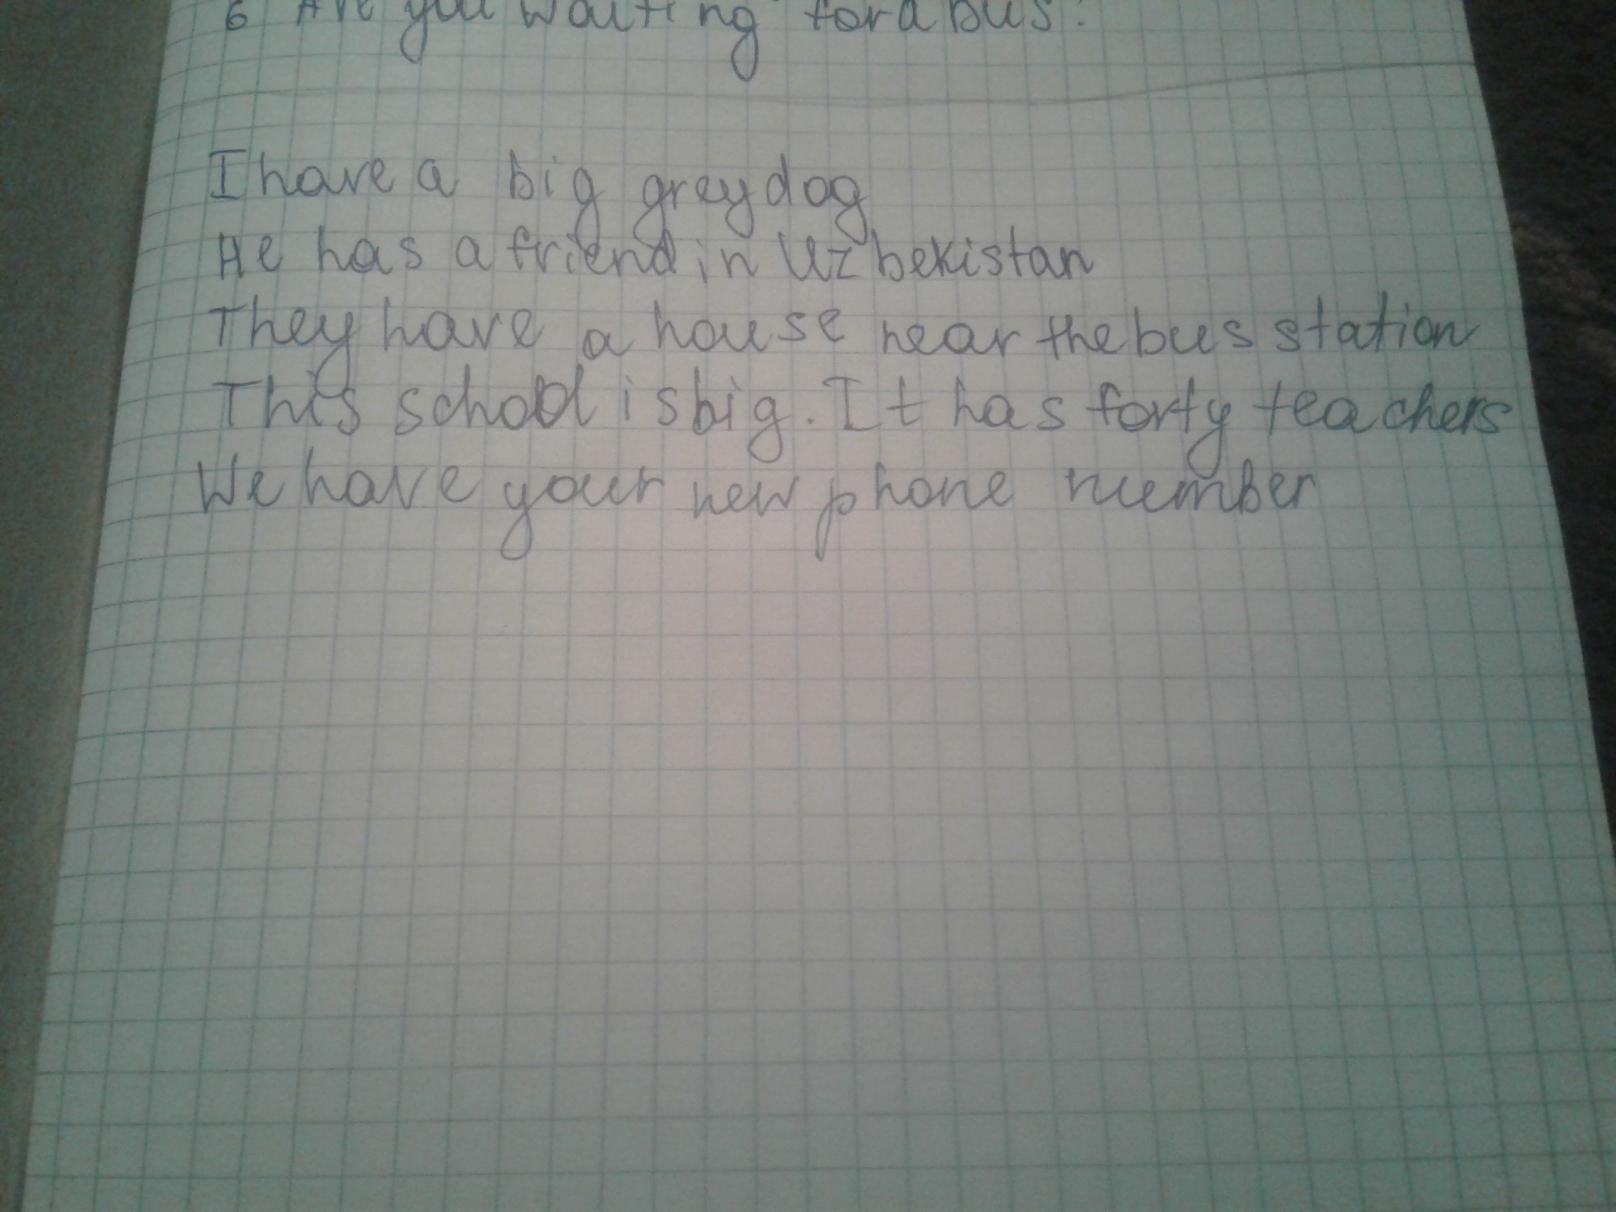 6 Are you waiting for a bus?
I have a big grey dog
He has a friend in Uzbekistan
They have a house near the bus station
This school is big. It has forty teachers
We have your new phone number